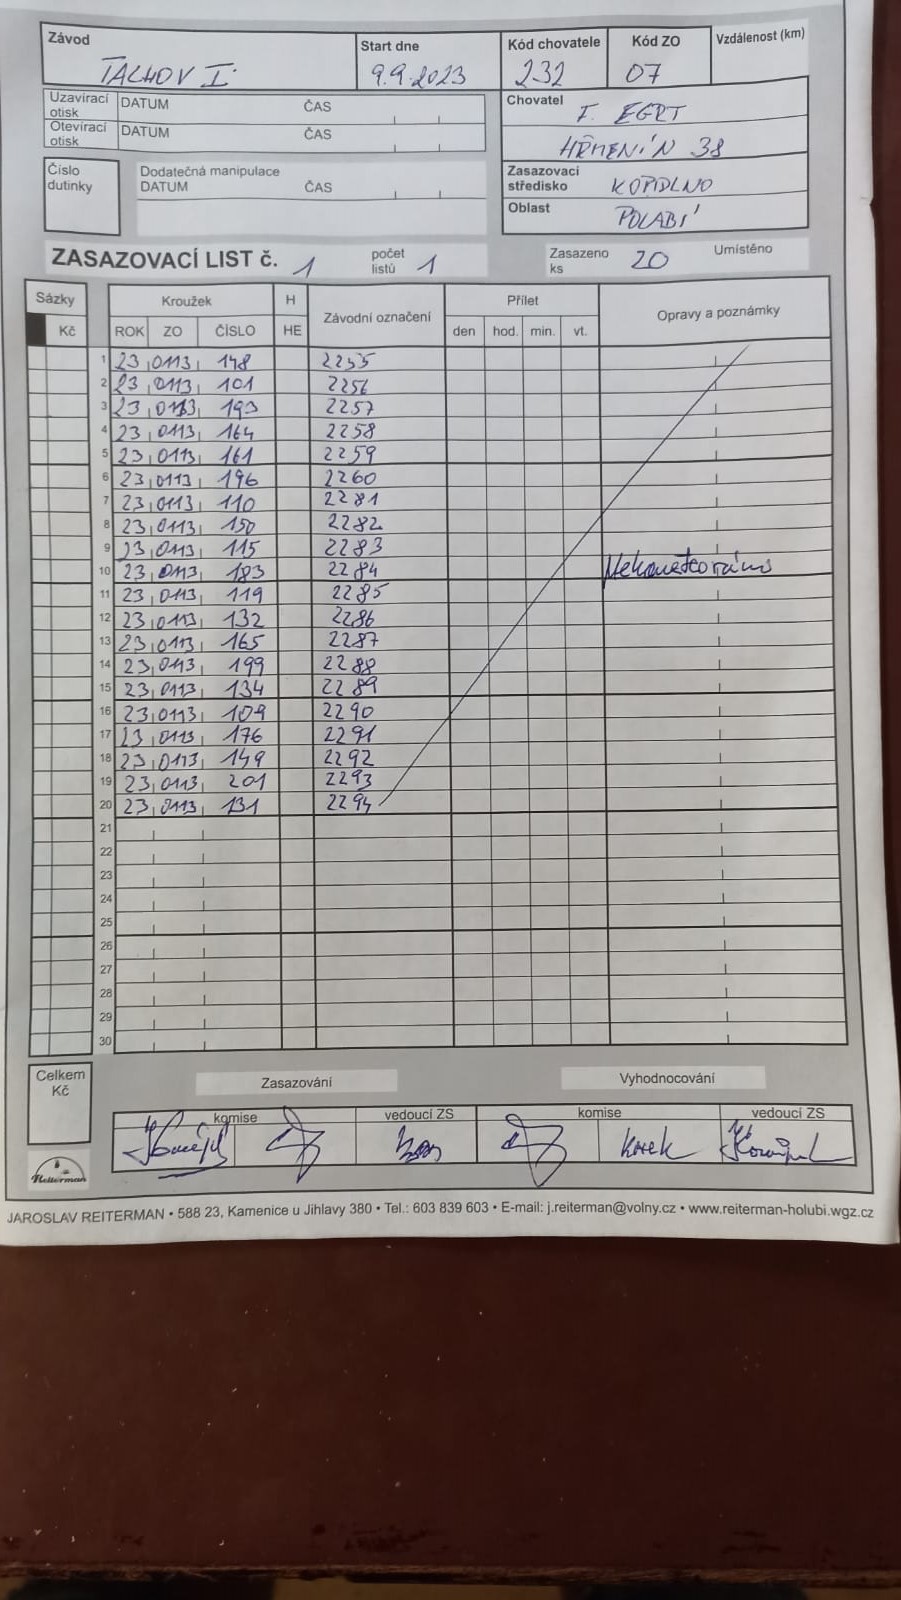 Závod Start dne Kód chovatele Kód ZO Vzdálenost (km)
TACHOV I. 9.9.2023 232 07
Uzavírací otisk DATUM ČAS
Otevírací otisk DATUM ČAS
Chovatel F. EGRT
HŘMENÍN 38
Číslo dutinky
Dodatečná manipulace
DATUM ČAS
Zasazovací středisko KOPIDLNO
Oblast POLABÍ
ZASAZOVACÍ LIST č. 1 počet listů 1 Zasazeno ks 20 Umístěno
Sázky Kroužek H Závodní označení Přílet Opravy a poznámky
Kč ROK ZO ČÍSLO HE den hod. min. vt.
1 23 0113 148 2255
2 23 0113 101 2256
3 23 0113 193 2257
4 23 0113 164 2258
5 23 0113 161 2259
6 23 0113 196 2260
7 23 0113 110 2281
8 23 0113 150 2282
9 23 0113 115 2283
10 23 0113 183 2284 Nekonstatováno
11 23 0113 119 2285
12 23 0113 132 2286
13 23 0113 165 2287
14 23 0113 199 2288
15 23 0113 134 2289
16 23 0113 109 2290
17 23 0113 176 2291
18 23 0113 149 2292
19 23 0113 201 2293
20 23 0113 131 2294
21
22
23
24
25
26
27
28
29
30
Celkem Kč
Zasazování Vyhodnocování
komise vedoucí ZS komise vedoucí ZS
Reiterman
JAROSLAV REITERMAN • 588 23, Kamenice u Jihlavy 380 • Tel.: 603 839 603 • E-mail: j.reiterman@volny.cz • www.reiterman-holubi.wgz.cz